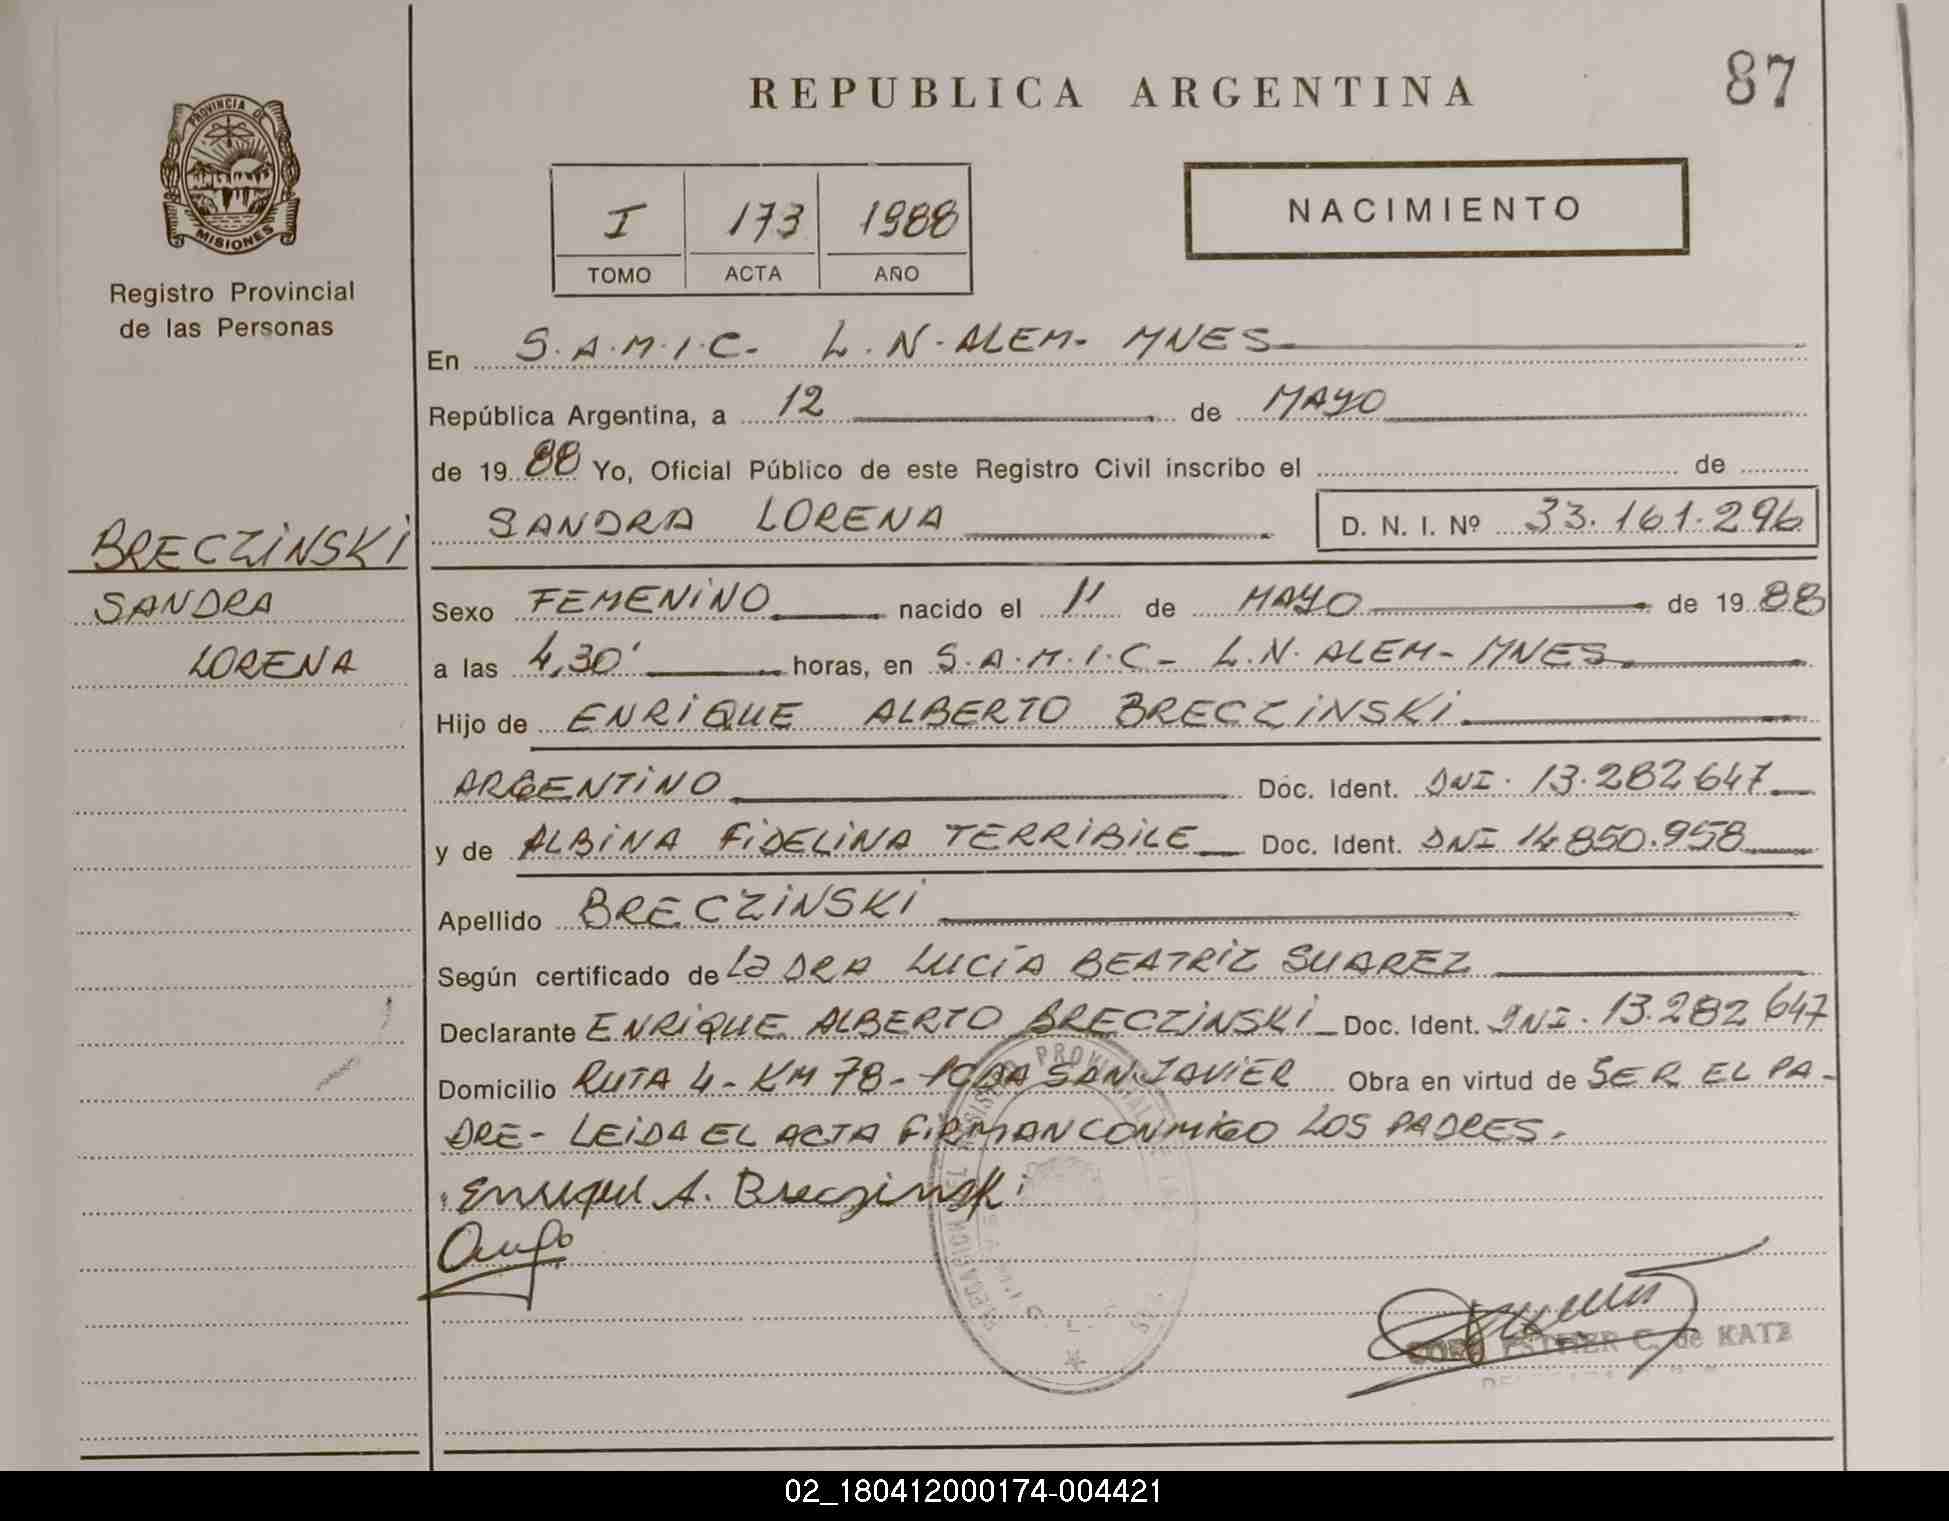 REPUBLICA ARGENTINA
87
PROVINCIA DE
MISIONES
Registro Provincial
de las Personas
I 173 1988
TOMO ACTA AÑO
NACIMIENTO
En S.A.M.I.C- L.N-ALEM- MNES
República Argentina, a 12 de MAYO
de 1988 Yo, Oficial Público de este Registro Civil inscribo el de
SANDRA LORENA D. N. I. Nº 33.161.296
BRECZiNSKi
SANDRA
LORENA
Sexo FEMENiNO nacido el 11 de MAYO de 1988
a las 4,30' horas, en S.A.M.I.C- L.N. ALEM- MNES
Hijo de ENRiQUE ALBERTO BRECZiNSKi
ARGENTiNO Doc. Ident. DNI. 13.282647
y de ALBiNA FiDELiNA TERRiBiLE Doc. Ident. DNI 14.850.958
Apellido BRECZiNSKi
Según certificado de La DRA LUCíA BEATRiZ SUAREZ
Declarante ENRiQUE ALBERTO BRECZiNSKi Doc. Ident. DNI. 13.282647
Domicilio RUTA 4- KM 78- PCDA SAN JAViER Obra en virtud de SER EL PA-
DRE- LEiDA EL ACTA FiRMAN CONMiGO LOS PADRES.
Enrique A. Breczinski
ESTHER C. de KATZ
02_180412000174-004421